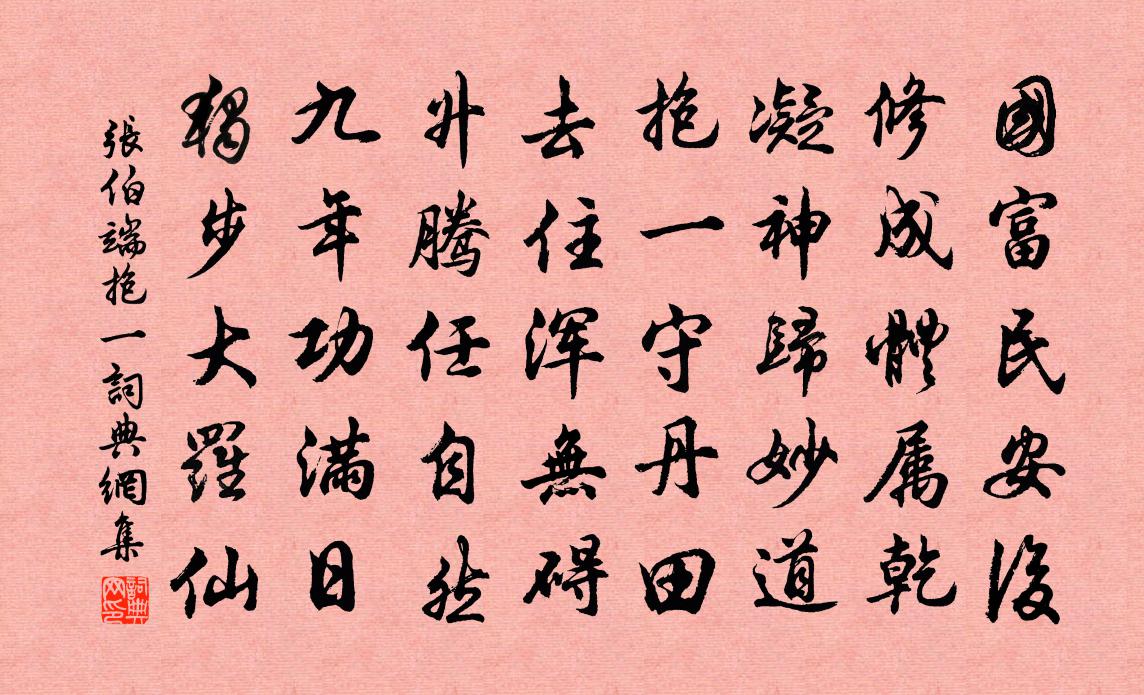 國富民安後
修成體属乾
凝神歸妙道
抱一守丹田
去住浑無碍
升騰任自然
九年功满日
獨步大羅仙
張伯端抱一詞典網集
詞典網印